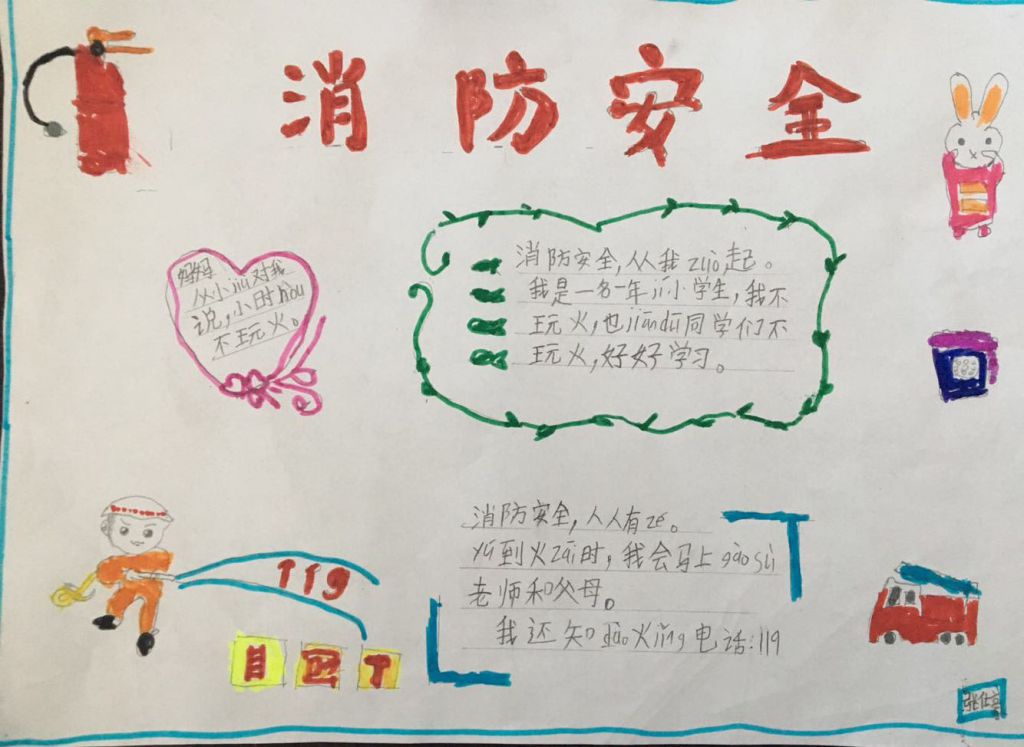 消防安全
妈妈
从小jiù对我
说，小时hòu
不玩火。
消防安全，从我zuò起。
我是一名一年jí小学生，我不
玩火，也jiāndū同学们不
玩火，好好学习。
119
消防安全，人人有zé。
yù到火zāi时，我会马上gàosù
老师和父母。
我还知dào火jǐng电话：119